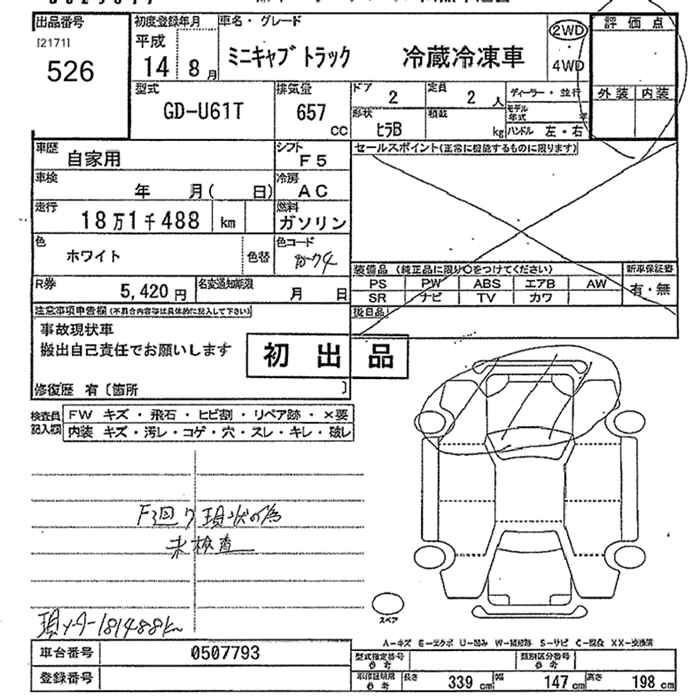 出品番号
[2171]
526
初度登録年月
平成
14年8月
車名・グレード
ミニキャブ トラック 冷蔵冷凍車
2WD
4WD
評価点
外装 内装
型式
GD-U61T
排気量
657
CC
ドア
2
定員
2人
形状
ヒラB
積載
kg
ディーラー・並行
モデル年式 年
ハンドル 左・右
車歴
自家用
シフト
F5
車検
年 月( 日)
冷房
AC
走行
18万1千488 km
燃料
ガソリン
色
ホワイト
色替
色コード
R券
5,420円
名変通知期限
月 日
セールスポイント(正常に機能するものに限ります)
装備品 (純正品に限り○をつけてください)
PS PW ABS エアB AW
SR ナビ TV カワ
新車保証書
有・無
後日品
注意事項申告欄(不具合内容等は具体的に記入して下さい)
事故現状車
搬出自己責任でお願いします
修復歴 有〔箇所 〕
初出品
検査員記入欄
FW キズ・飛石・ヒビ割・リペア跡・×要
内装 キズ・汚レ・コゲ・穴・スレ・キレ・破レ
未検査
181488km
スペア
A-キズ E-エクボ U-凹み W-補修跡 S-サビ C-腐食 XX-交換済
車台番号
0507793
登録番号
型式指定番号 参考
類別区分番号 参考
車検証明細 参考
長さ 339 cm 幅 147 cm 高さ 198 cm